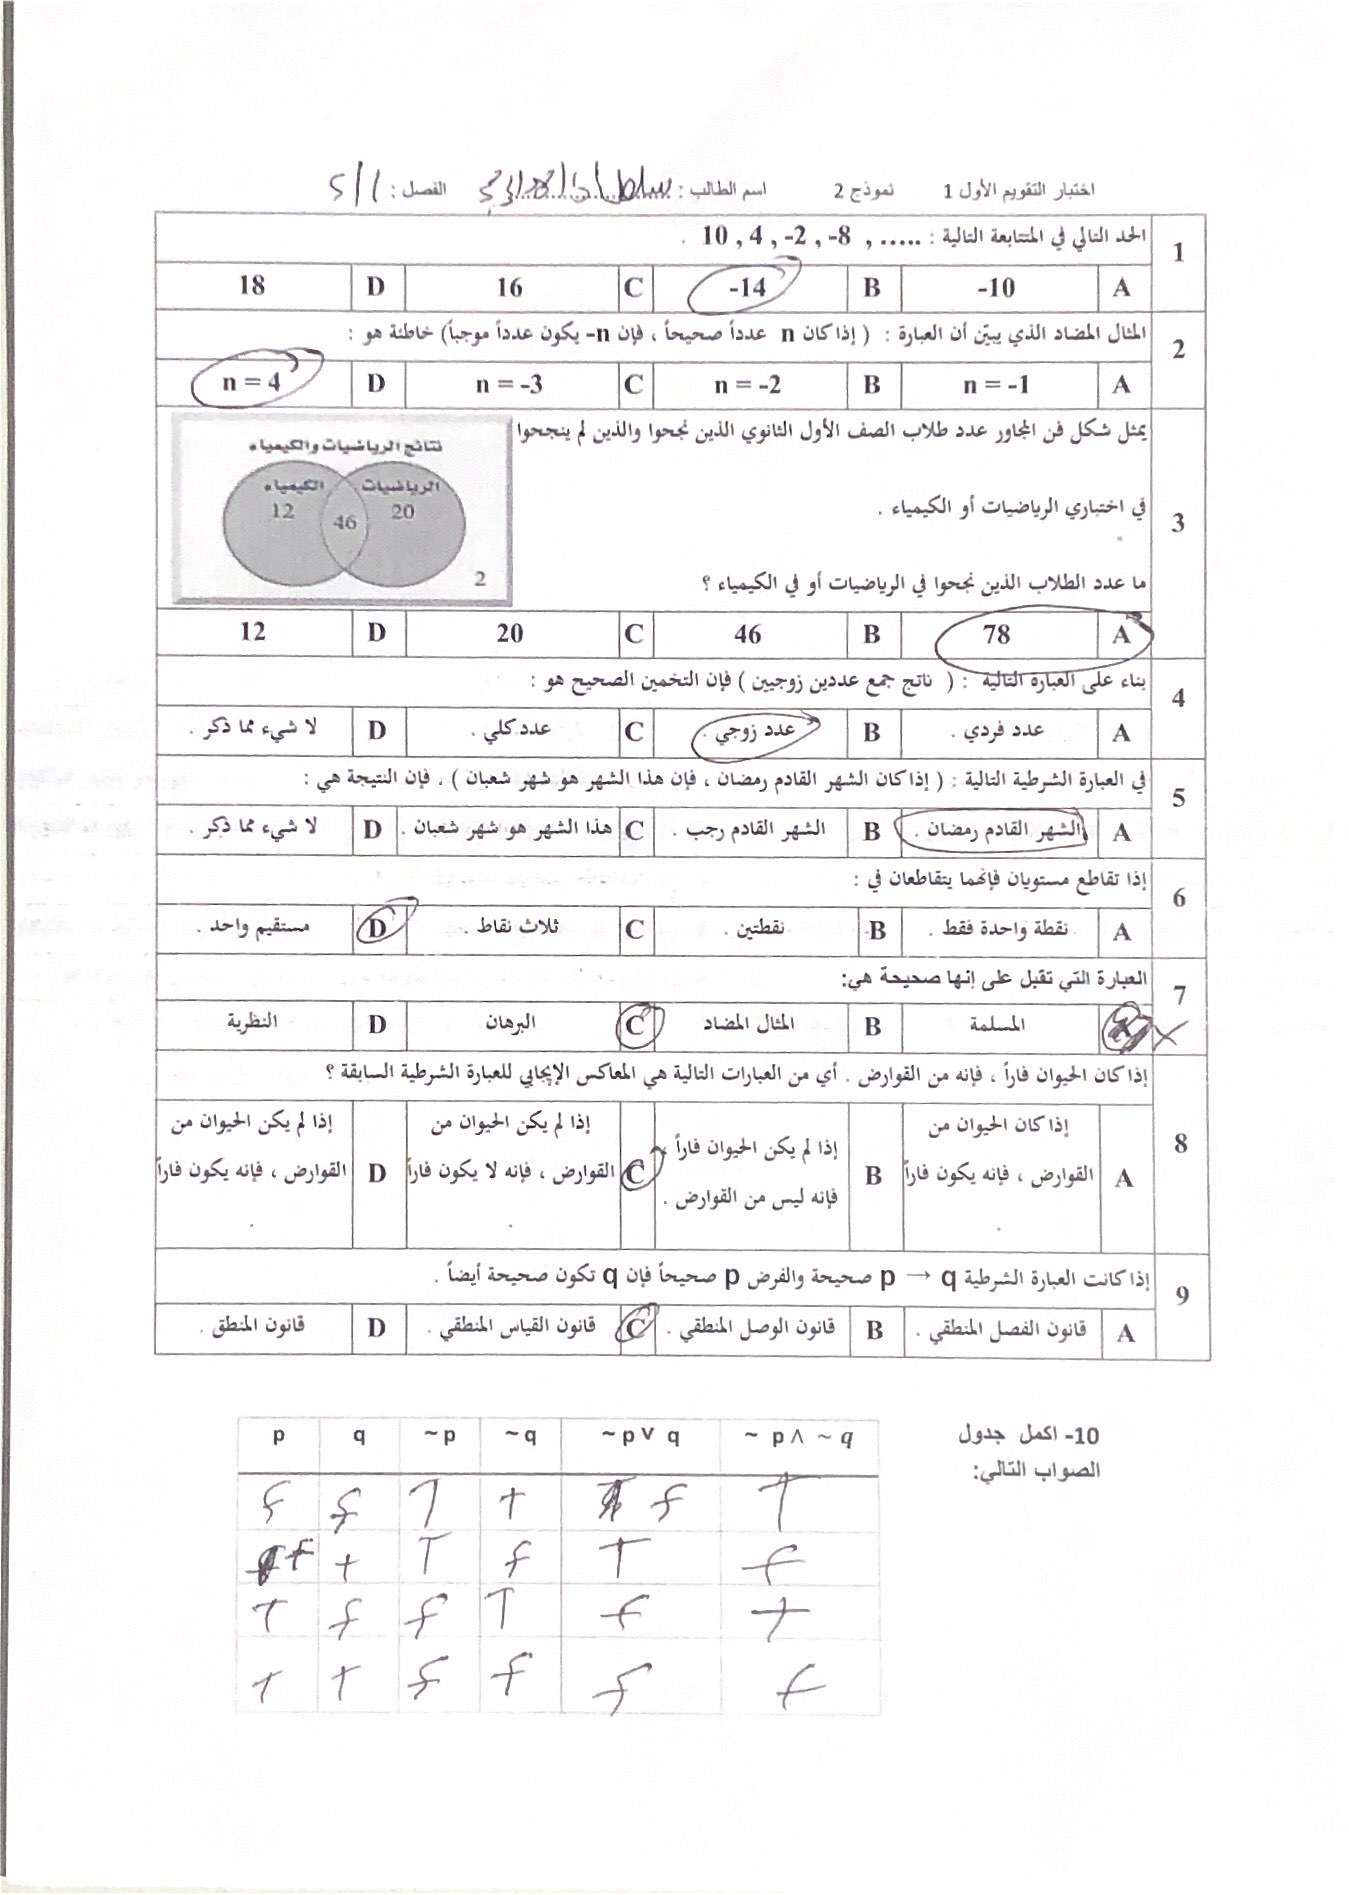 اختبار التقويم الأول 1 نموذج 2 اسم الطالب : سلطان الفصل : 5/1
1 الحد التالي في المتتابعة التالية : ..... , 8- , 2- , 4 , 10 .
A -10 B -14 C 16 D 18
2 المثال المضاد الذي يبيّن أن العبارة : ( إذا كان n عدداً صحيحاً ، فإن n- يكون عدداً موجباً) خاطئة هو :
A n = -1 B n = -2 C n = -3 D n = 4
3 يمثل شكل فن المجاور عدد طلاب الصف الأول الثانوي الذين نجحوا والذين لم ينجحوا
في اختباري الرياضيات أو الكيمياء .
ما عدد الطلاب الذين نجحوا في الرياضيات أو في الكيمياء ؟
نتائج الرياضيات والكيمياء
الرياضيات الكيمياء
20 46 12
2
A 78 B 46 C 20 D 12
4 بناء على العبارة التالية : ( ناتج جمع عددين زوجيين ) فإن التخمين الصحيح هو :
A عدد فردي . B عدد زوجي . C عدد كلي . D لا شيء مما ذكر .
5 في العبارة الشرطية التالية : ( إذا كان الشهر القادم رمضان ، فإن هذا الشهر هو شهر شعبان ) . فإن النتيجة هي :
A الشهر القادم رمضان . B الشهر القادم رجب . C هذا الشهر هو شهر شعبان . D لا شيء مما ذكر .
6 إذا تقاطع مستويان فإنهما يتقاطعان في :
A نقطة واحدة فقط . B نقطتين . C ثلاث نقاط . D مستقيم واحد .
7 العبارة التي تقبل على إنها صحيحة هي:
المسلمة B المثال المضاد C البرهان D النظرية
8 إذا كان الحيوان فاراً ، فإنه من القوارض . أي من العبارات التالية هي المعاكس الإيجابي للعبارة الشرطية السابقة ؟
A إذا كان الحيوان من القوارض ، فإنه يكون فاراً . B إذا لم يكن الحيوان فاراً فإنه ليس من القوارض . C إذا لم يكن الحيوان من القوارض ، فإنه لا يكون فاراً . D إذا لم يكن الحيوان من القوارض ، فإنه يكون فاراً .
9 إذا كانت العبارة الشرطية p → q صحيحة والفرض p صحيحاً فإن q تكون صحيحة أيضاً .
A قانون الفصل المنطقي . B قانون الوصل المنطقي . C قانون القياس المنطقي . D قانون المنطق .
10- اكمل جدول
الصواب التالي:
p q ~p ~q ~p ∨ q ~ p ∧ ~ q
f f T t f T
f t T f T f
T f f T f t
t t f f f f